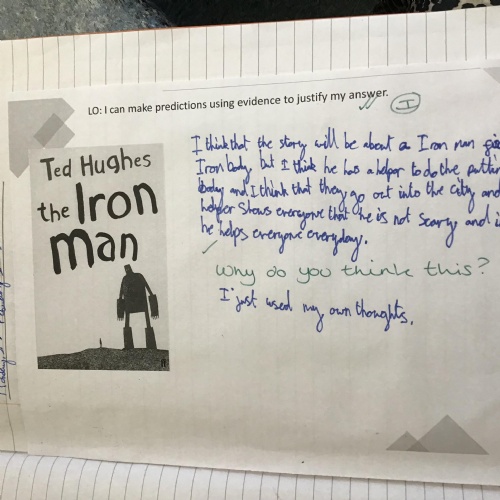 LO: I can make predictions using evidence to justify my answer.
I
Ted Hughes
the Iron
man
I think that the story will be about a Iron man
Iron body, but I think he has a helpor to do the
body and I think that they go out into the City and
helper Shows everyone that he is not scary and
he helps everyone everyday.
Why do you think this?
I just used my own thoughts.